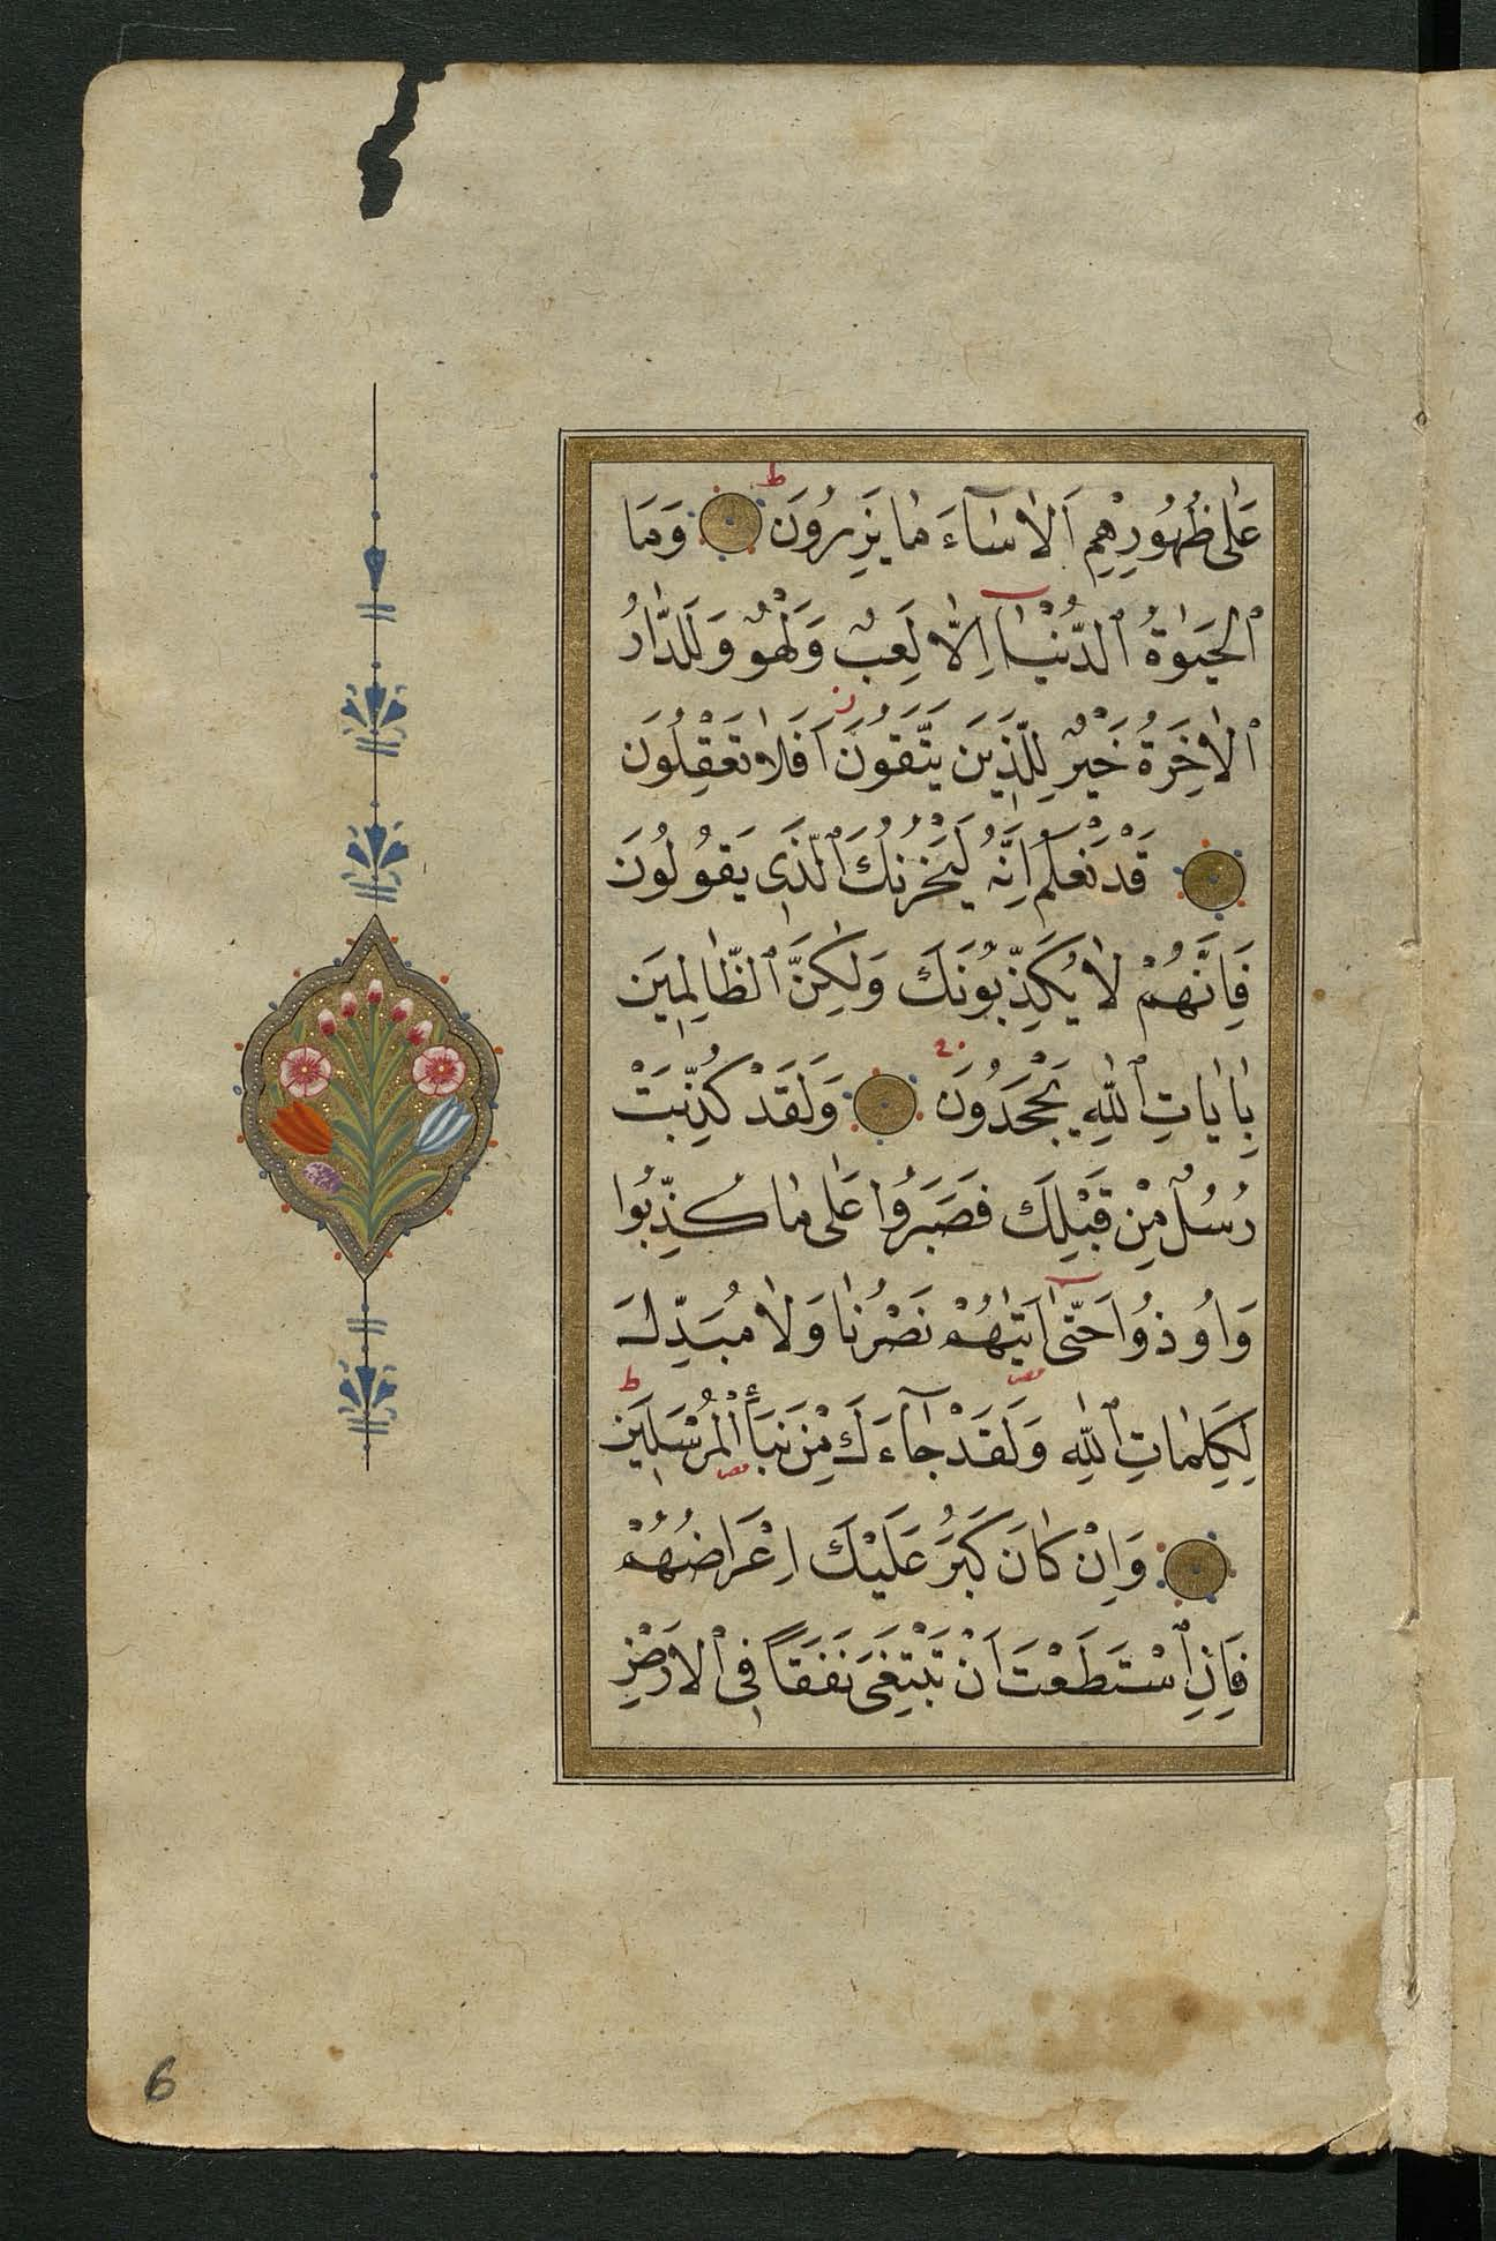 عَلٰى ظُهُورِهِمْ اَلَا سَٓاءَ مَا يَزِرُونَ ط وَمَا
الْحَيٰوةُ الدُّنْيَٓا اِلَّا لَعِبٌ وَلَهْوٌ وَلَلدَّارُ
الْاٰخِرَةُ خَيْرٌ لِلَّذِينَ يَتَّقُونَ اَفَلَا تَعْقِلُونَ
قَدْ نَعْلَمُ اِنَّهُ لَيَحْزُنُكَ الَّذِى يَقُولُونَ
فَاِنَّهُمْ لَا يُكَذِّبُونَكَ وَلٰكِنَّ الظَّالِمِينَ
بِاٰيَاتِ اللّٰهِ يَجْحَدُونَ وَلَقَدْ كُذِّبَتْ
رُسُلٌ مِنْ قَبْلِكَ فَصَبَرُوا عَلٰى مَا كُذِّبُوا
وَاُوذُوا حَتّٰٓى اَتٰيهُمْ نَصْرُنَا وَلَا مُبَدِّلَ
لِكَلِمَاتِ اللّٰهِ وَلَقَدْ جَٓاءَكَ مِنْ نَبَأِ الْمُرْسَلِينَ ط
وَاِنْ كَانَ كَبُرَ عَلَيْكَ اِعْرَاضُهُمْ
فَاِنِ اسْتَطَعْتَ اَنْ تَبْتَغِىَ نَفَقًا فِى الْاَرْضِ
6